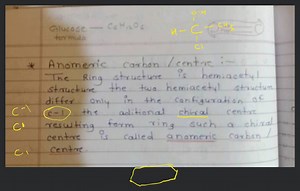 Glucose — C6H12O6
H - C - 
Cl
* Anomeric carbon / centre :-
The Ring structure is hemiacetyl
structure the two hemiacetyl structure
differ only in the configuration of
C-1 C-1 the aditional chiral centre
resulting form ring such a chiral
centre is called anomeric carbon /
C-1 centre